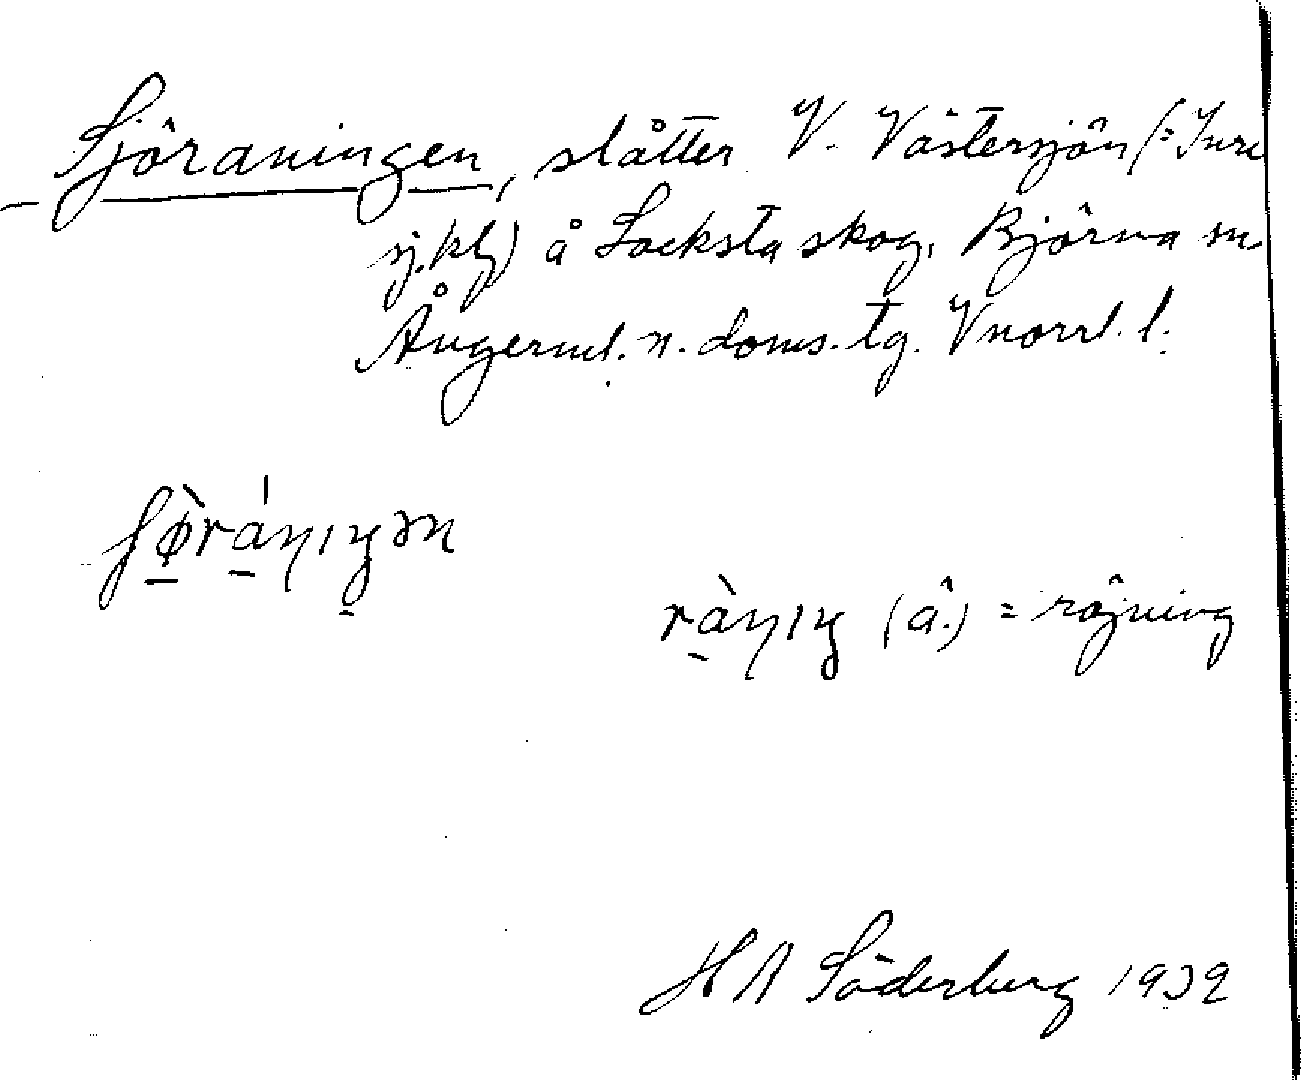 Sjöraningen, slåtter V. Västersjön (= Inre
sj. kbl) å Locksta skog, Björna sn
Ångerml. n. doms. tg. Vnorrl. l.
(â.) = röjning
H A Söderberg 1932